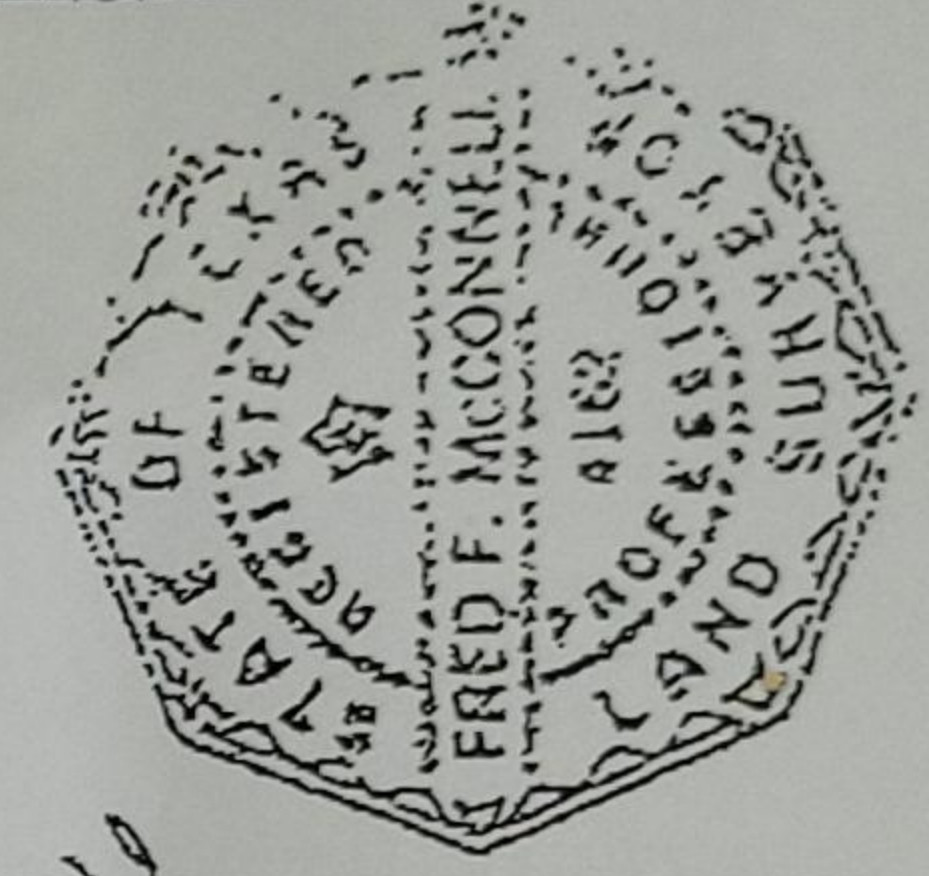 STATE OF TEXAS
REGISTERED
FRED F. McCONNELL
PROFESSIONAL
LAND SURVEYOR